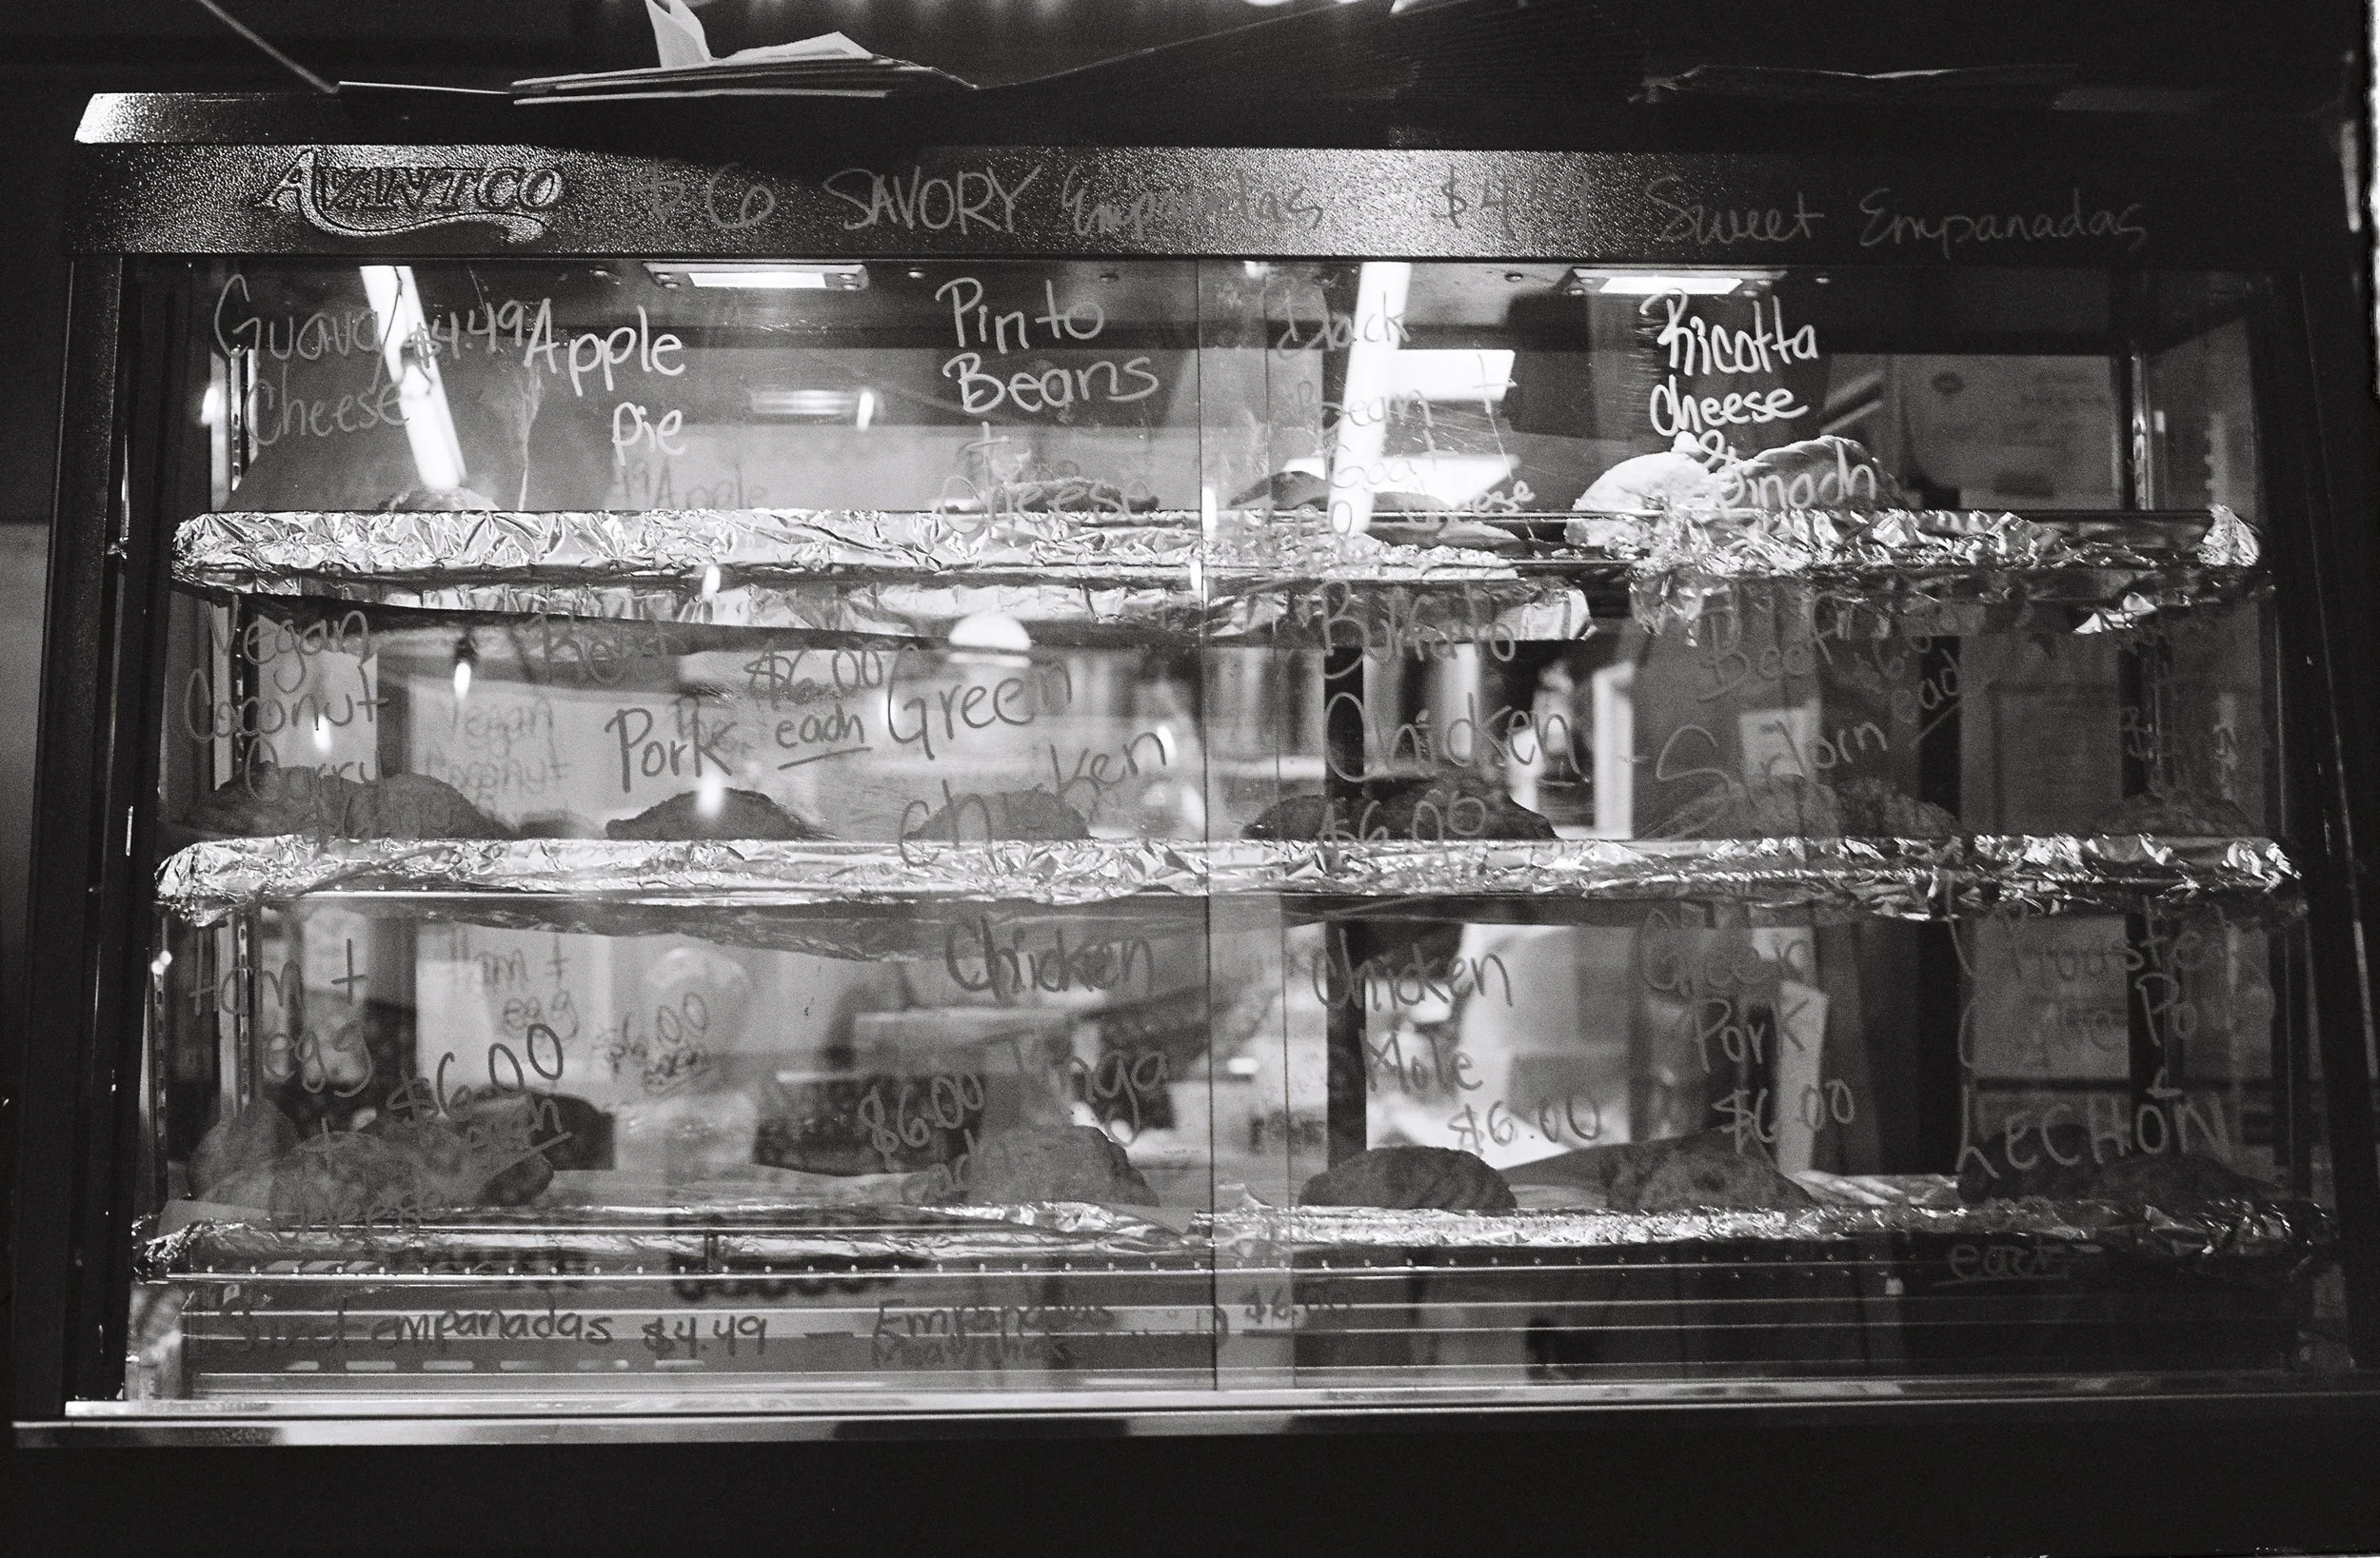 AVANTCO $6 SAVORY Empanadas $4.49 Sweet Empanadas
Guava $4.49
Cheese
Apple
Pie
Pinto
Beans
+
Cheese
Black
Bean +
Goat
Cheese
Ricotta
cheese
&
Spinach
Vegan
Coconut
Curry
Red
Pork
$6.00
each
Green
Chicken
Buffalo
Chicken
$6.00
Beef
Sirloin
$6.00
each
Ham +
egg
+
Cheese
$6.00
each
Chicken
Tinga
$6.00
each
Chicken
Mole
$6.00
Green
Pork
$6.00
LECHON
each
Sweet empanadas $4.49 — Empanadas $6.00